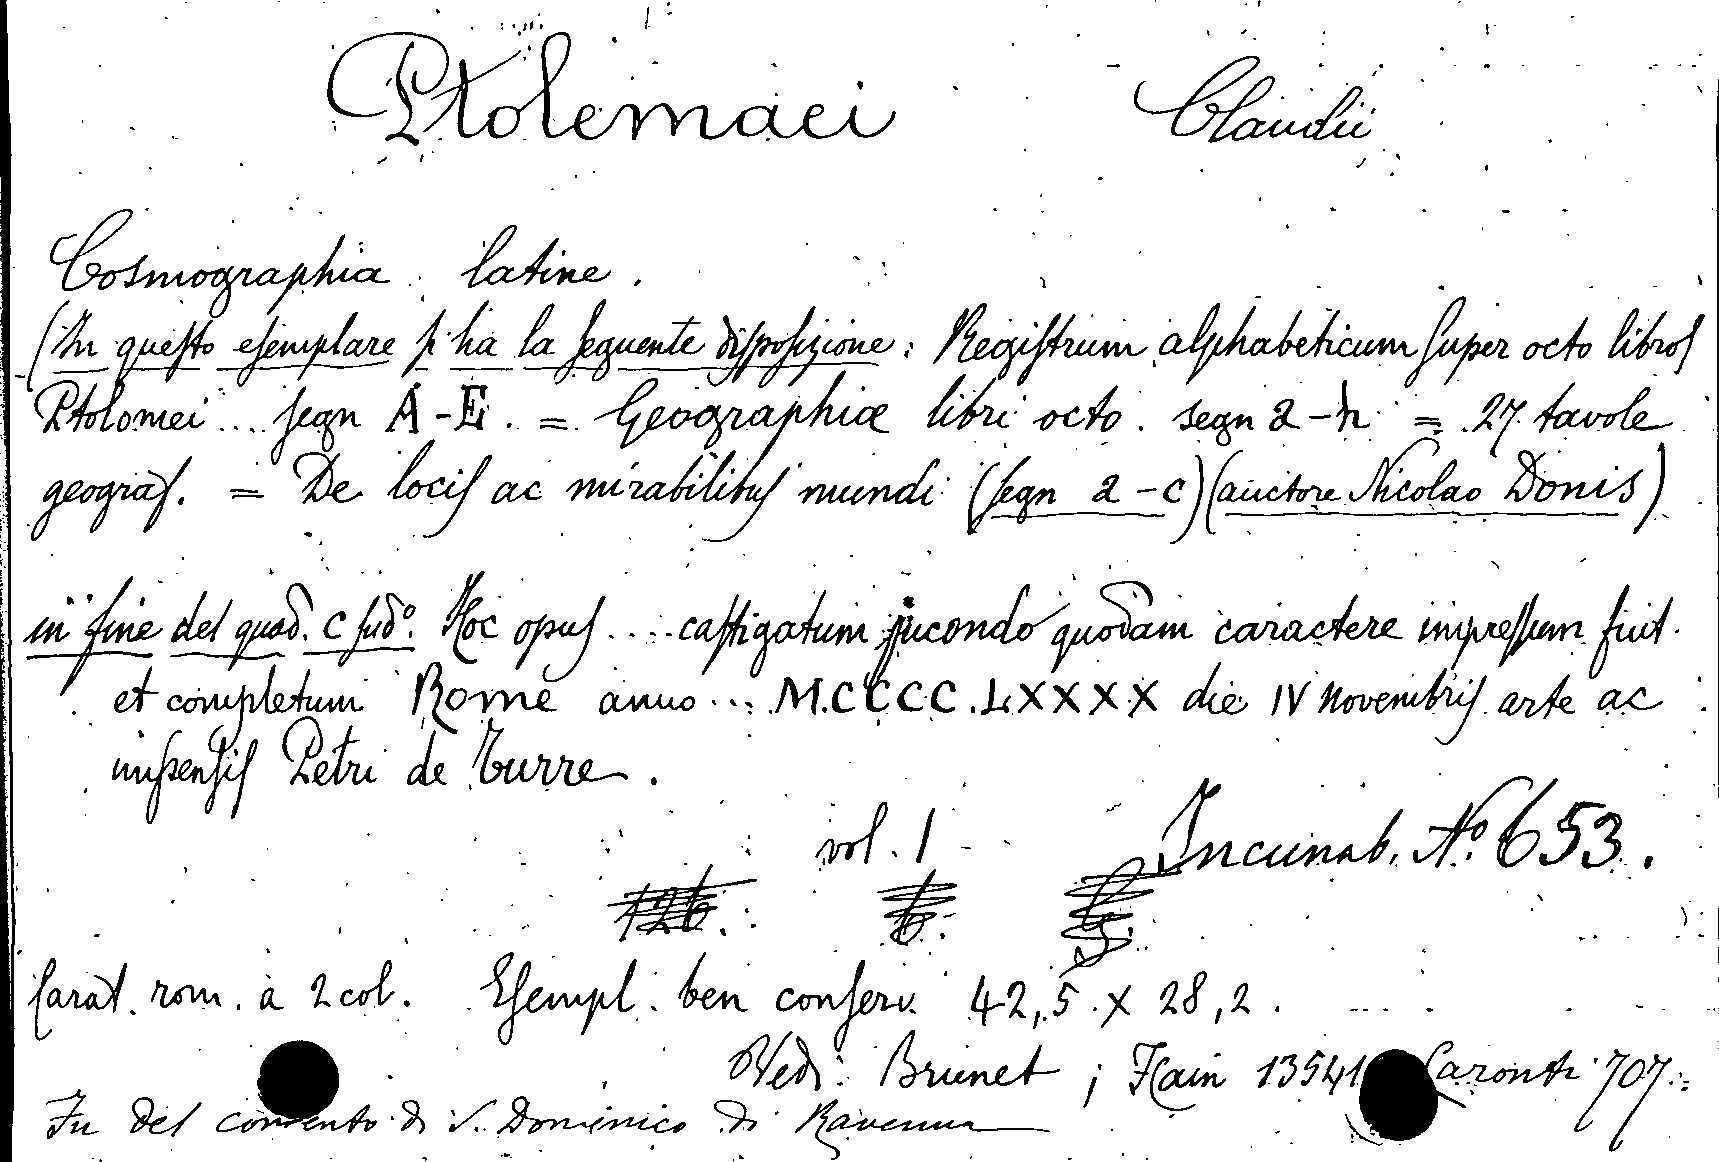 Ptolemaei Claudii
Cosmographia latine.
(In questo esemplare si ha la seguente disposizione: Registrum alphabeticum super octo libros
Ptolomei ... segn A-E. = Geographiæ libri octo. segn a-h = 27 tavole
geograf. = De locis ac mirabilibus mundi (segn a-c) (auctore Nicolao Donis)
in fine del quad. c sud°. Hoc opus .... castigatum jucondo quodam caractere impressum fuit.
et completum Rome anno ... M.CCCC.LXXXX die IV Novembris arte ac
impensis Petri de Turre.
vol. 1 Incunab. N° 653.
126. 6.
Carat. rom. a 2 col. Esempl. ben conserv. 42,5 x 28,2.
Vedi Brunet; Hain 13541 Caronti 707.
Fu del convento di S. Domenico di Ravenna